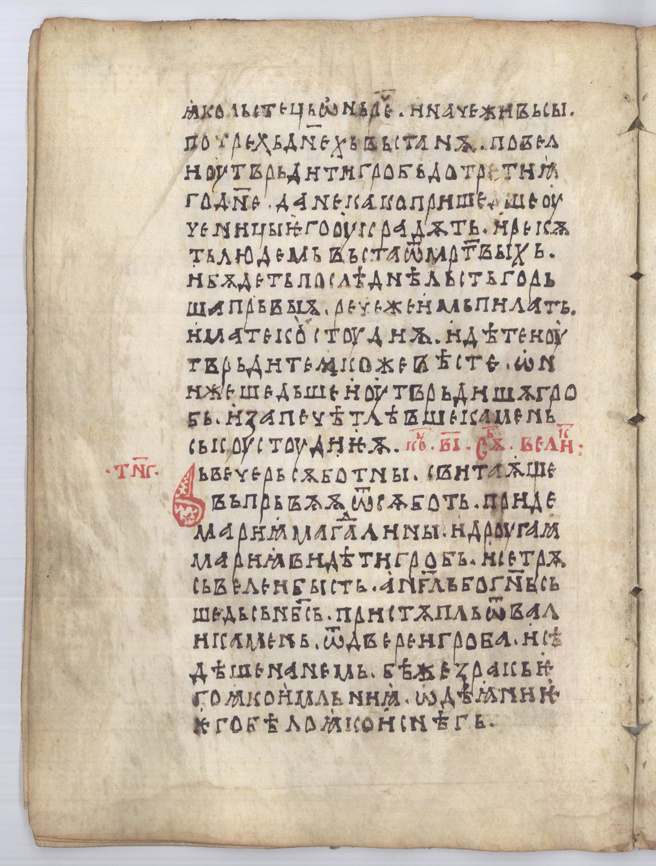 ꙗко льстець ѡнъ рⷱ҇е · и наче живъ сы ·
по трехъ дн҃ехъ въстанѫ · повел
ноутврьдити гробь до третиѩ
годн҃е · да не како пришедъше оу
ченици ѥго оукрадѫть · и рекѫ
ть людемъ въста ѿ мрт҃выхъ ·
и бѫдеть послѣднѣ льсть горь
ша прьвыѫ · рече же имь пилать ·
имате костоудиѫ · идѣте ноу
тврьдите ꙗкоже вѣсте · ѡн
и же шедъше ноутврьдишѫ гро
бь · и запечѣтлѣвше камень
сь коустоудиеѫ · ко҃ · в҃і · сѫ҃ · вели҃к :
· тн҃г · Вь вечерь сѫботны · свитаѫще
въ прьвѫѫ ѿ сѫботъ · приде
мариꙗ магд҃алины · и дроугаꙗ
мариꙗ видѣти гробь · и се трѫ
сь вели бысть · анг҃ль бо гн҃ь съ
шедь сь нб҃сь · пристѫпль ѿвал
и камень · ѿ двереи гроба · и сѣ
дѣше на немь · бѣ же зракь ѥ
го ꙗко и мльниꙗ · ѡдѣꙗнии
ѥго бѣло ꙗко и снѣгь ·